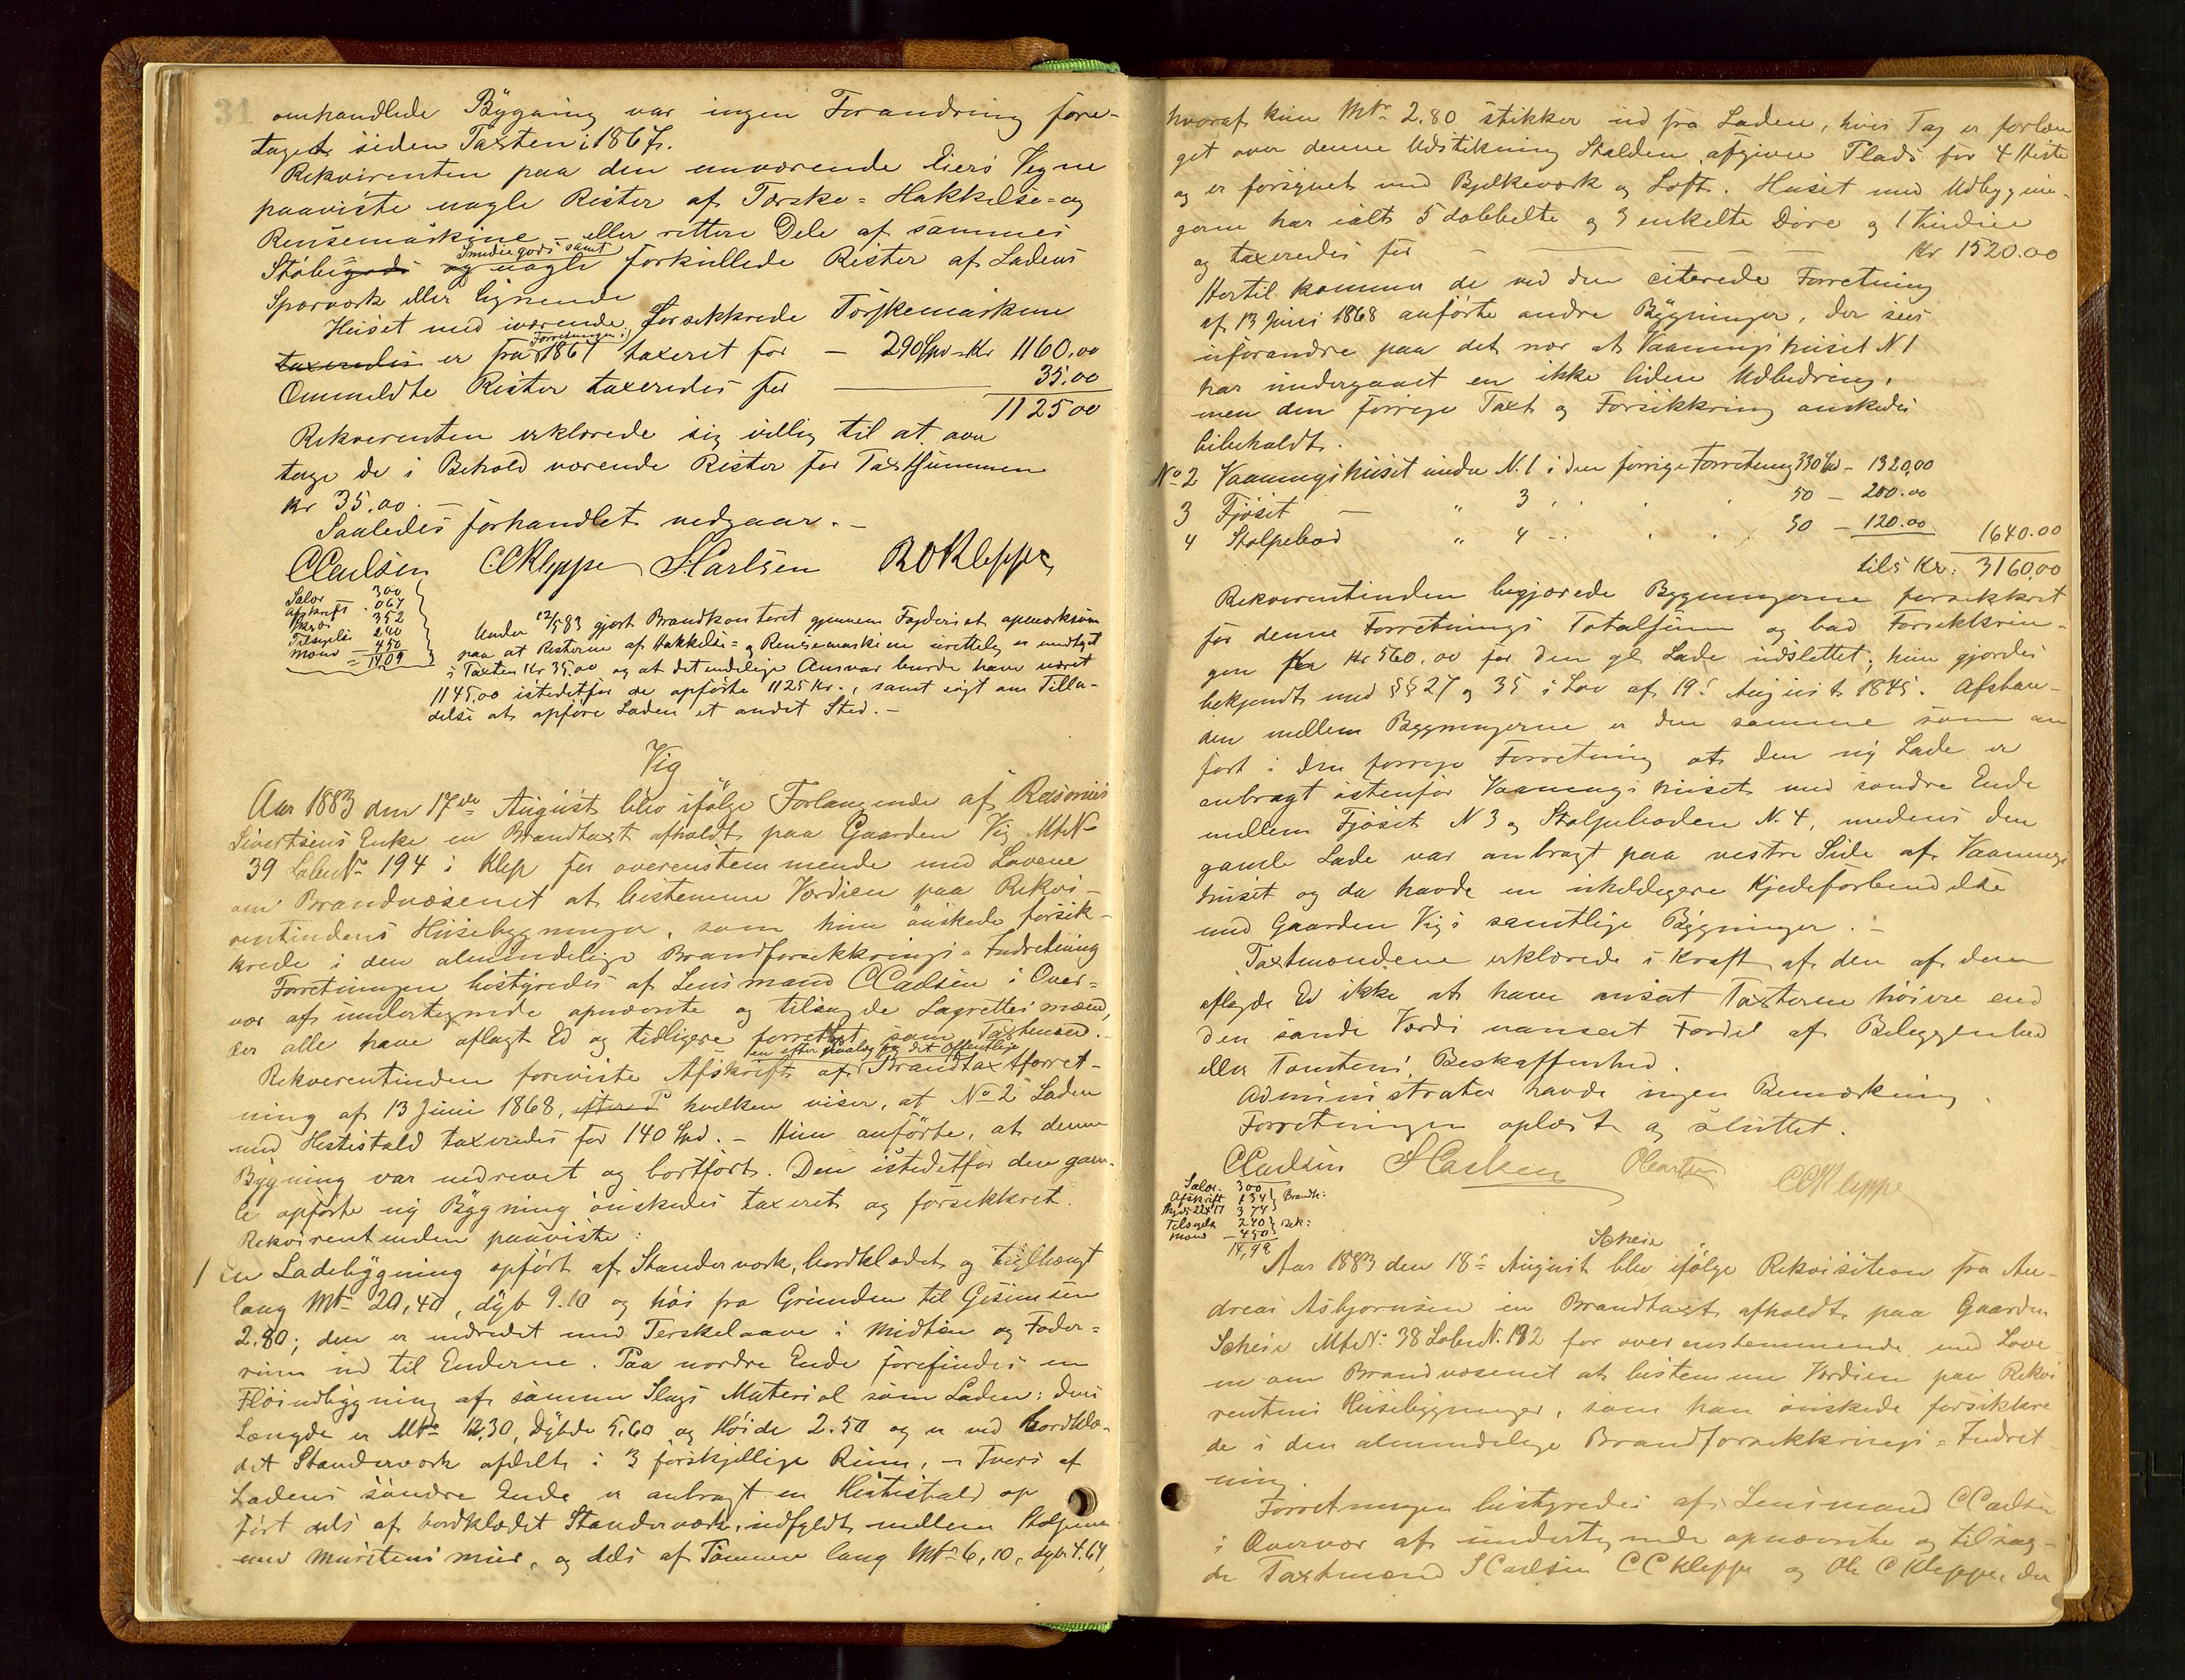 31
omhandlede Bygning var ingen Forandring fore-
taget siden Taxten i 1867.
Rekvirenten paa den nuværende Eiers Vegne
paaviste nogle Rester af Tærske- Hakkelse- og
Rensemaskine - eller rettere Dele af sammes
Smediegods samt
Støbegods og nogle forkullede Rester af Ladens
Sparværk eller lignende
Huset med iværende forsikkrede Tørskemaskine
Forretningen i
taxeredes er fra 1867 taxeret for — 290 Spd - Kr 1160,00
Ommeldte Rester taxeredes for — 35.00
1125 00
Rekverenten erklærede sig villig til at over
tage de i Behold værende Rester for Taxtsummen
Kr 35.00. —
Saaledes forhandlet vedgaar. —
CCarlsen CCKleppe SCarlsen ROKleppe
Salær 300
Afskrift - 067
Skyds 352
Tilsigelse 240
Mænd 450
= 14,09
Under 12/5 83 gjort Brandkontoret gjennem Fogderiet opmærksom
paa at Resterne af Hakkelse- og Rensemaskine urettelig er medtaget
i Taxten Kr 35.00 og at det endelige Ansvar burde have været
1145.00 istedetfor de opførte 1125 Kr., samt søgt om Tilla-
delse at opføre Laden et andet Sted. —
Vig
Aar 1883 den 17de August blev ifølge Forlangende af Rasmus
Sivertsens Enke en Brandtaxt afholdt paa Gaarden Vig Mt No
39 Løbe No 194 i Klep for overenstemmende med Lovene
om Brandvæsenet at bestemme Værdien paa Rekvi-
rentindens Huusebygninger, som hun ønskede forsik-
krede i den almindelige Brandforsikkrings-Indretning
Forretningen bestyredes af Lensmand CCarlsen i Over-
vær af undertegnede opnævnte og tilsagde Lagrettesmænd,
der alle have aflagt Ed og tidligere forrettet som Taxtmænd.
en efter Paalæg fra det Offentlige
Rekverentinden foreviste Afskrift af Brandtaxtforret-
ning af 13 Juni 1868, hvilken viser, at No 2 Laden
med Hestestald taxeredes for 140 Spd. - Hun anførte, at denne
Bygning var nedrevet og bortført. Den istedetfor den gam-
le opførte ny Bygning ønskedes taxeret og forsikkret.
Rekvirentinden paaviste:
1 En Ladebygning opført af Standerværk, bordklædet og tællhængt
lang Mtr 20,40, dyb 9.10 og høi fra Grunden til Gesimsen
2.80; den er indredet med Terskelaave i Midten og Foder-
rum ud til Enderne. Paa nordre Ende forefindes en
Fløiudbygning af samme Slags Material som Laden: dens
Længde er Mtr 12.30, Dybde 5.60 og Høide 2.50 og er ved bordklæ-
det Standerværk afdelt i 3 forskjellige Rum, - Tvers af
Ladens søndre Ende er anbragt en Hestestald op
ført dels af bordklædet Standerværk, udfyldt mellem Stolperne
med Murstensmur, og dels af Tømmer lang Mtr 6,10, dyb 4.64,
hvoraf kun Mtr 2.80 stikker ud fra Laden, hvis Tag er forlæn
get over denne Udstikning Stalden afgiver Plads for 4 Heste
og er forsynet med Bjelkeværk og Loft. Huset med Udbygnin-
gerne har ialt 5 dobbelte og 3 enkelte Døre og 1 Vindue
og taxeredes for — Kr 1520.00
Hertil kommer de ved den citerede Forretning
af 13 Juni 1868 anførte andre Bygninger, der sees
uforandre paa det nær at Vaaningshuset N. 1
har undergaaet en ikke liden Udbedring,
men den forrige Taxt og Forsikkring ønskedes
bibeholdt.
No 2 Vaaningshuset under N. 1 i den forrige Forretning 330 Spd - 1320,00
3 Fjøset — " 3 50 - 200.00
4 Stolpebod " 4 30 - 120.00 1640.00
tils Kr: 3160,00
Rekverentinden begjærede Bygningerne forsikkret
for denne Forretnings Totalsum og bad Forsikkrin-
gen Kr 560.00 for den gl Lade udslettet; hun gjordes
bekjendt med §§ 27 og 35 i Lov af 19: August 1845. Afstan-
den mellem Bygningerne er den samme som an
ført i den forrige Forretning at den ny Lade er
anbragt østenfor Vaaningshuset med søndre Ende
mellem Fjøset N 3 og Stolpeboden N. 4, medens den
gamle Lade var anbragt paa vestre Side af Vaanings
huset og da havde en uheldigere Kjedeforbindelse
med Gaarden Vigs samtlige Bygninger. —
Taxtmændene erklærede i Kraft af den af dem
aflagde Ed ikke at have ansat Taxterne høiere end
den sande Værdi uanseet Fordel af Beliggenhed
eller Tomtens Beskaffenhed.
Administrater havde ingen Bemærkning.
Forretningen oplæst og sluttet.
CCarlsen SCarlsen CCKleppe
Salær. 300
Afskrift 134 Brandk:
Skyds 22+17 374
Tilsigelse 240 Rek:
Mænd - 450
14,98
Scheie
Aar 1883 den 18: August blev ifølge Rekvisition fra An-
dreas Asbjørnsen en Brandtaxt afholdt paa Gaarden
Scheie Mt N: 38 Løbe N. 192 for overenstemmende med Love
ne om Brandvæsenet at bestemme Værdien paa Rekvi
rentens Husebygninger, som han ønskede forsikkre
de i den almindelige Brandforsikkrings-Indret
ning.
Forretningen bestyredes af Lensmand CCarlsen
i Overvær af undertegnede opnævnte og tilsag-
de Taxtmænd SCarlsen CC Kleppe og Ole C Kleppe, der